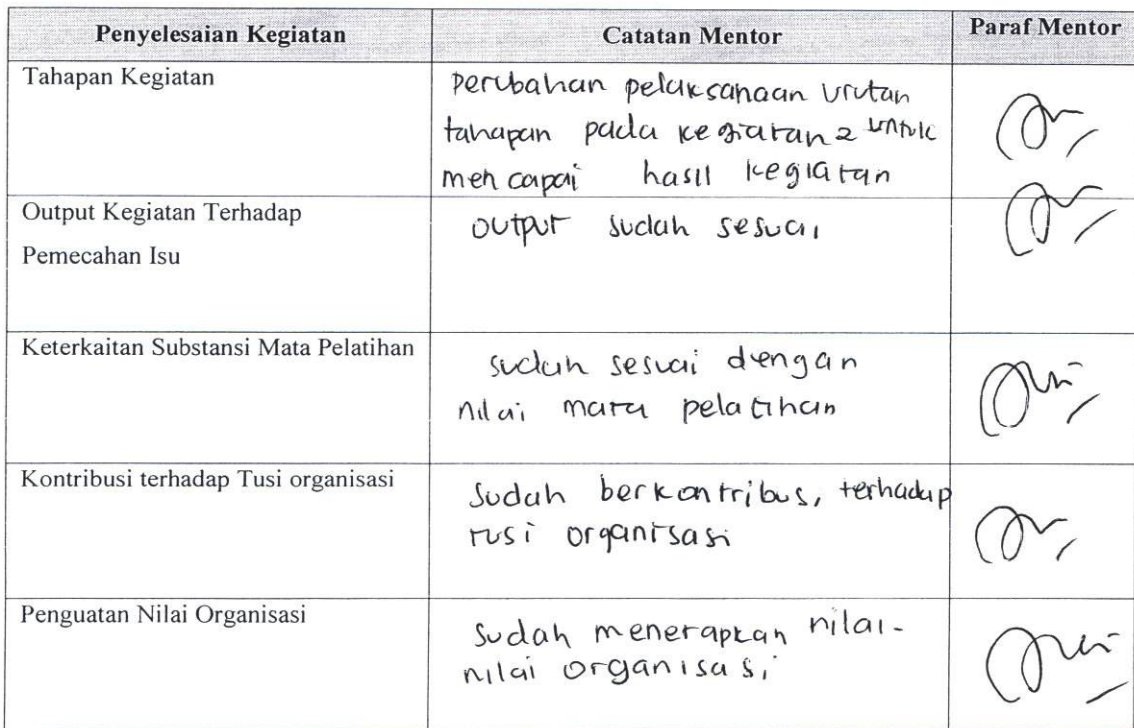 Penyelesaian Kegiatan Catatan Mentor Paraf Mentor
Tahapan Kegiatan
perubahan pelaksanaan urutan
tahapan pada kegiatan 2 untuk
mencapai hasil kegiatan
Output Kegiatan Terhadap
Pemecahan Isu
output sudah sesuai
Keterkaitan Substansi Mata Pelatihan
sudah sesuai dengan
nilai mata pelatihan
Kontribusi terhadap Tusi organisasi
Sudah berkontribusi terhadap
tusi organisasi
Penguatan Nilai Organisasi
Sudah menerapkan nilai-
nilai organisasi